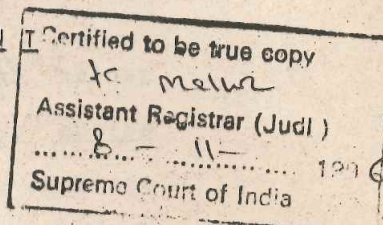 T Certified to be true copy
Assistant Registrar (Judl)
8 - 11 - 1996
Supreme Court of India